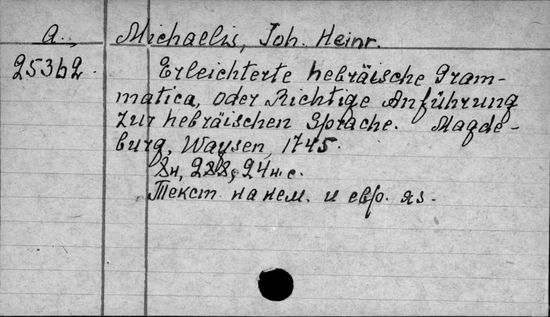 a., Michaelis, Joh. Heinr.
25362. Erleichterte hebräische Gram-
matica, oder Richtige Anführung
zur hebräischen Sprache. Magde-
burg, Waysen, 1745.
8н, 288, 24н. с.
Текст на нем. и евр. яз.